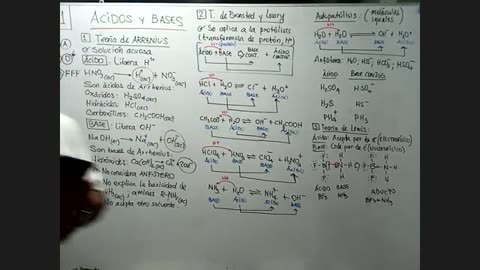 ÁCIDOS Y BASES
1 Teoría de ARRENIUS
Solución acuosa
ÁCIDO: Libera H+
HNO3(ac) → H+(ac) + NO3-(ac)
Son ácidos de Arrhenius
Oxácidos: H2SO4(ac)
Hidrácidos: HCl(ac)
Carboxílicos: CH3COOH
BASE: Libera OH-
NaOH(ac) → Na+(ac) + OH-(ac)
Son bases de Arrhenius
Hidróxidos: Ca(OH)2
considera ANFÓTERO
explica la basicidad de
aminas R-NH2(ac)
acepta otro solvente.
2 T. de Bronsted y Lowry
Se aplica a la protólisis
(transferencia de protón, H+)
Ácido + BASE ⇌ BASE CONJ. + ÁCIDO CONJ.
HCl + H2O ⇌ Cl- + H3O+
ÁCIDO BASE BASE ÁCIDO
CH3COO- + H2O ⇌ OH- + CH3COOH
BASE ÁCIDO BASE ÁCIDO
HClO4 + HNO3 ⇌ ClO4- + H2NO3+
ÁCIDO BASE BASE ÁCIDO
NH3 + H2O ⇌ NH4+ + OH-
BASE ÁCIDO ÁCIDO BASE
Autoprotólisis (moléculas iguales)
H2O + H2O ⇌ OH- + H3O+
ÁCIDO BASE BASE ÁCIDO
Anfótero: H2O; HS-; HCO3-; HSO4-
ÁCIDO BASE CONJ.
H2SO4 HSO4-
H2S HS-
PH4+ PH3
3 Teoría de Lewis:
Ácido: Acepta par de é
Base: Cede par de é
ÁCIDO BASE ADUCTO
BF3 NH3 BF3-NH3